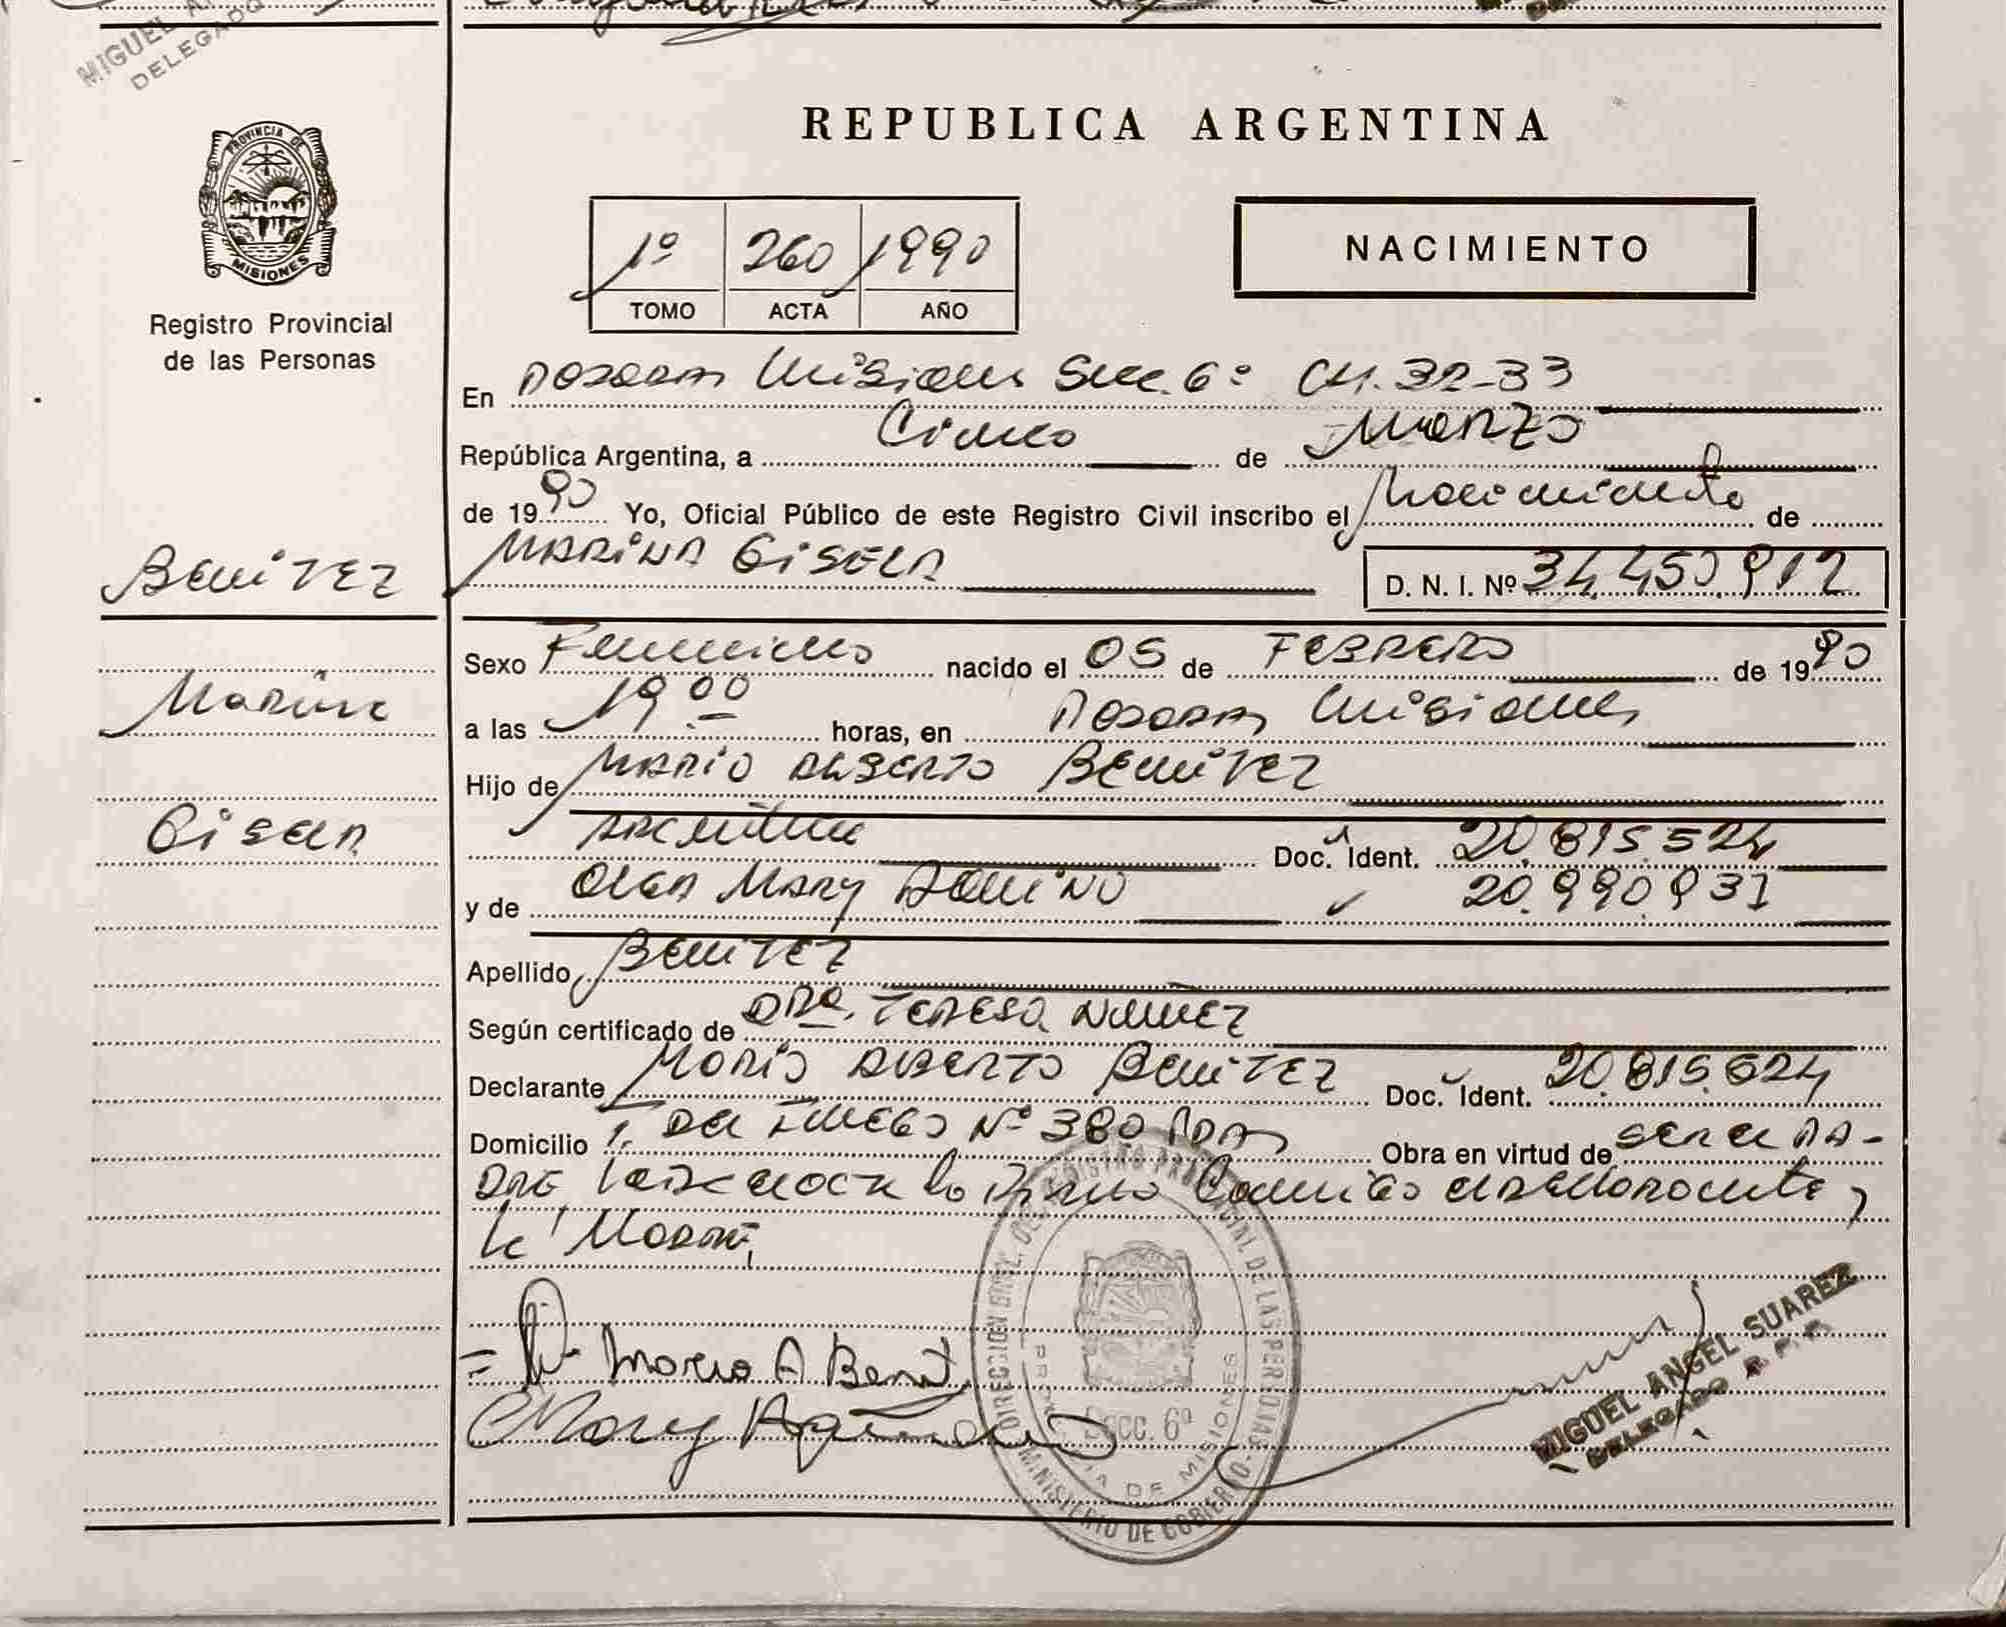 MIGUEL A
DELEGADO
PROVINCIA DE
MISIONES
Registro Provincial
de las Personas
REPUBLICA ARGENTINA
1º 260 1990
TOMO ACTA AÑO
NACIMIENTO
En Posadas Misiones Secc. 6º CH. 32-33
República Argentina, a Cinco de Marzo
de 1990 Yo, Oficial Público de este Registro Civil inscribo el Nacimiento de
Benitez
MARINA GISELA
D. N. I. Nº 34.450.912
Sexo Femenino nacido el 05 de FEBRERO de 1990
Marina
a las 19.00 horas, en Posadas Misiones
Hijo de MARIO ALBERTO BENITEZ
Gisela
Argentina Doc. Ident. 20.815.524
y de OLGA MARY AQUINO 20.990.931
Apellido BENITEZ
Según certificado de DRA. TERESA NUÑEZ
Declarante MARIO ALBERTO BENITEZ Doc. Ident. 20.815.524
Domicilio T. DEL FUEGO Nº 380 Pdas Obra en virtud de ser el PA-
DRE, lo Firma Conmigo el declarante y
la Madre,
Mario A Benit
Mary Aquino
DIRECCION GRAL. DEL REGISTRO PROVINCIAL DE LAS PERSONAS
SECC. 6º
PROVINCIA DE MISIONES
MINISTERIO DE GOBIERNO
MIGUEL ANGEL SUAREZ
DELEGADO R. P. P.